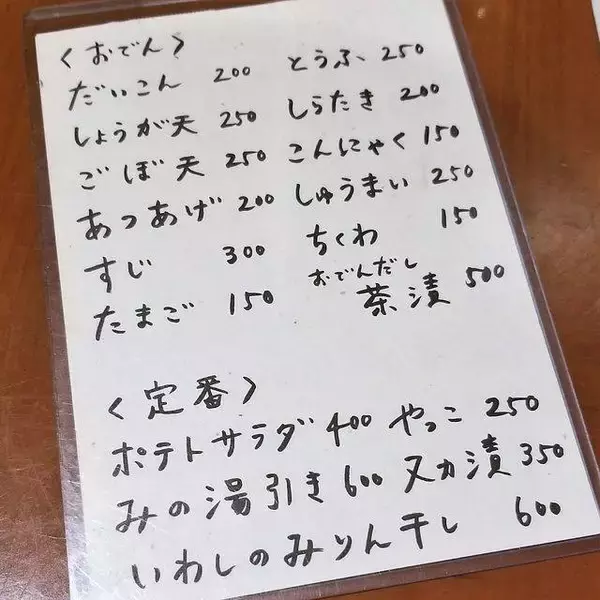 〈おでん〉
だいこん 200 とうふ 250
しょうが天 250 しらたき 200
ごぼ天 250 こんにゃく 150
あつあげ 200 しゅうまい 250
すじ 300 ちくわ 150
たまご 150 おでんだし茶漬 500
〈定番〉
ポテトサラダ 400 やっこ 250
みの湯引き 600 ヌカ漬 350
いわしのみりん干し 600